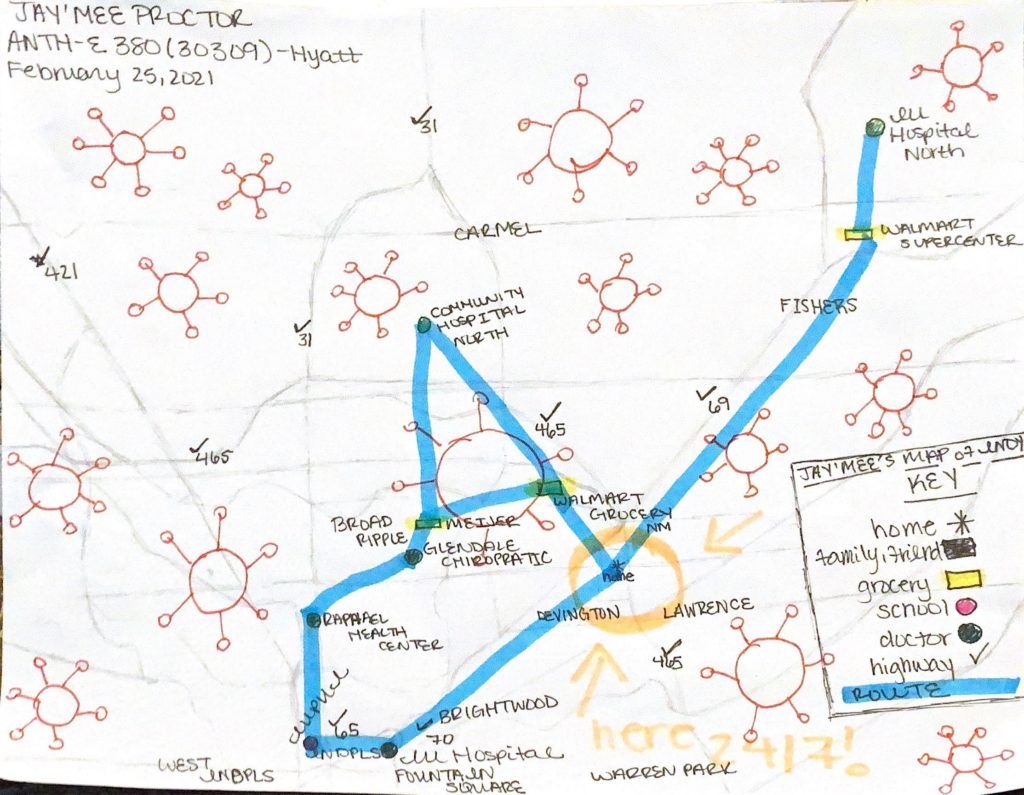 JAY'MEE PROCTOR
ANTH-E 380 (30309) - Hyatt
February 25, 2021
31
IU
Hospital
North
CARMEL
WALMART
SUPERCENTER
421
COMMUNITY
HOSPITAL
NORTH
FISHERS
31
69
465
465
JAY'MEE'S MAP OF INDY
KEY
home
family/friend
grocery
school
doctor
highway
ROUTE
WALMART
GROCERY
NM
BROAD
RIPPLE
MEIJER
GLENDALE
CHIROPRATIC
home
DEVINGTON
LAWRENCE
RAPHAEL
HEALTH
CENTER
465
IUPUI
65
BRIGHTWOOD
70
here 24/7!
INDPLS
IU Hospital
FOUNTAIN
SQUARE
WEST
INDPLS
WARREN PARK